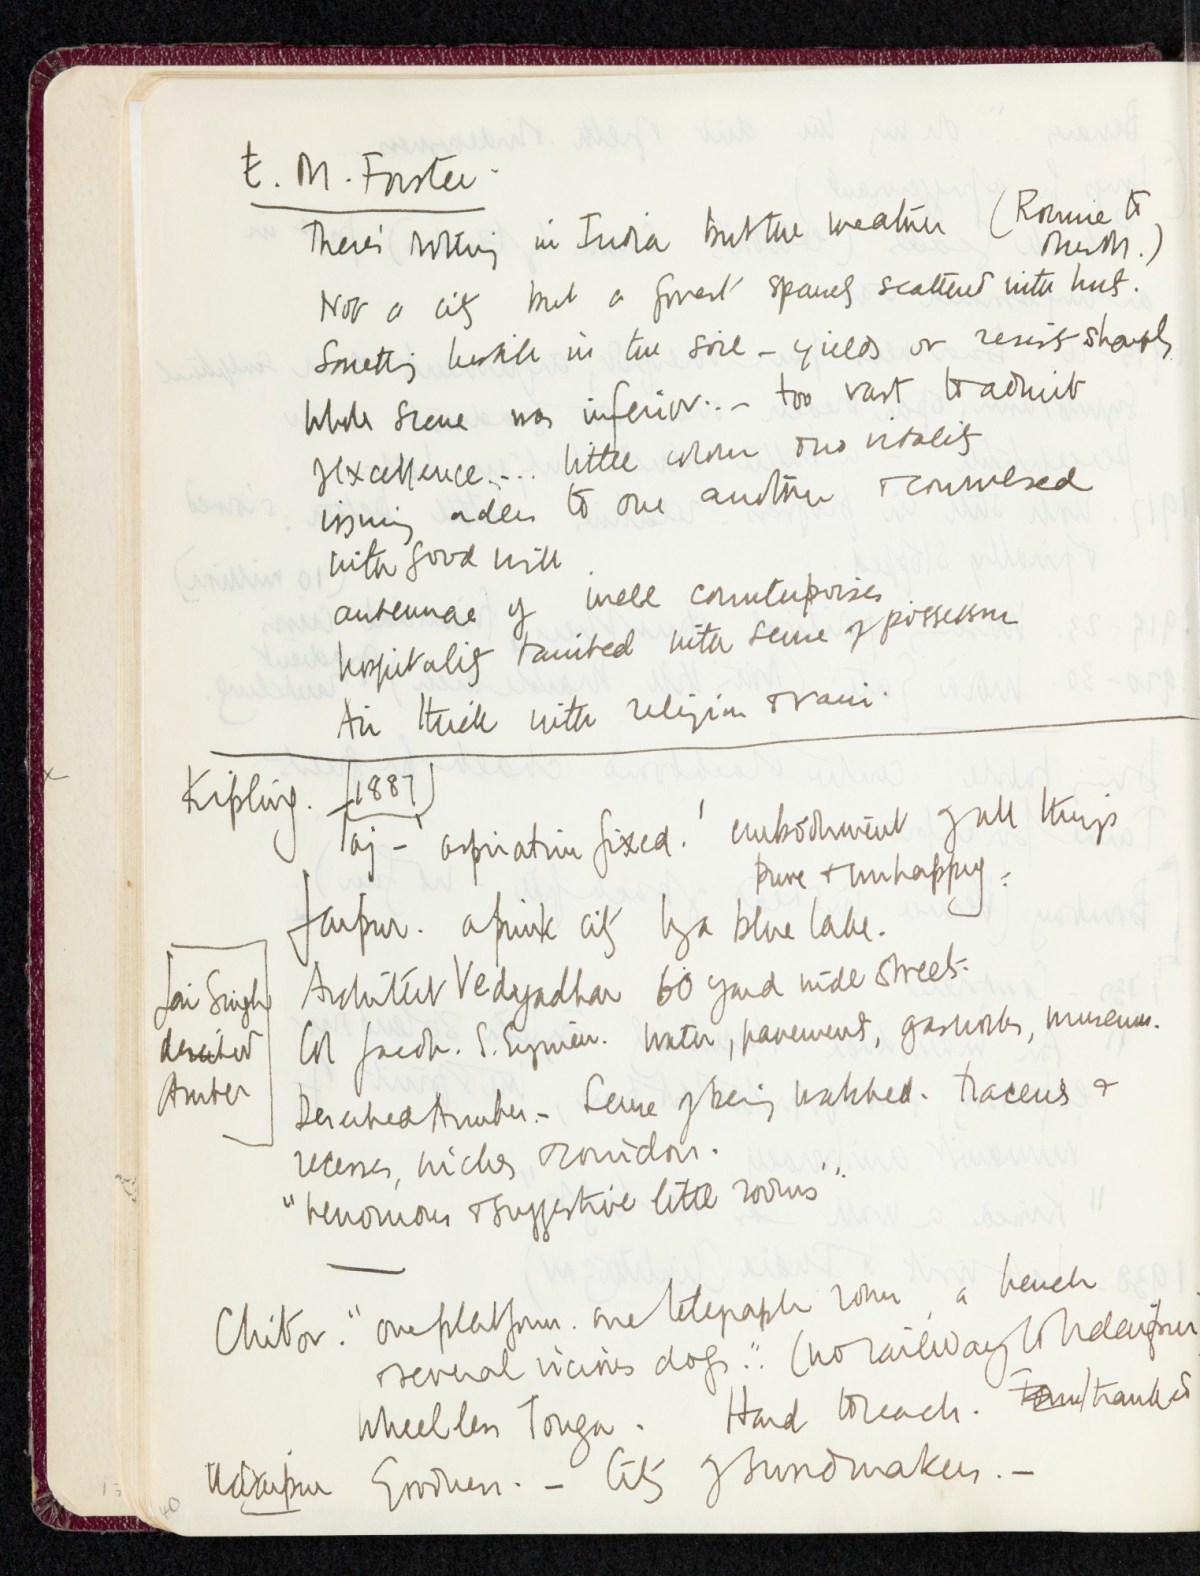 E. M. Forster.
There's nothing in India but the weather (Ronnie to
Mrs M.)
Not a city but a forest sparsely scattered with huts.
Something hostile in the soil - yields or resists sharply
Whole scene was inferior... - too vast to admit
of excellence.... little colour & no vitality
issuing orders to one another & conversed
with good will
antennae of
counterpoises
hospitality tainted with sense of possession
Air thick with religion & rain.
Kipling. (1887)
Taj - 'aspiration fixed.' embodiment of all things
pure & unhappy.
Jaipur. a pink city by a blue lake.
Jai Singh
deserted
Amber
Architect Vedyadhar 60 yard wide streets.
Col Jacob. S. Swinton. Water, pavement, gasworks, museum.
Deserted Amber - Sense of being watched. traceries &
recesses, niches & corridors.
"venomous & suggestive little rooms".
Chitor. "one platform. one telegraph room, a bench
& several vicious dogs." (no railway to Udaipur)
Wheelless Tonga. Hard to reach. thanked
Udaipur - City of Swordmakers. -